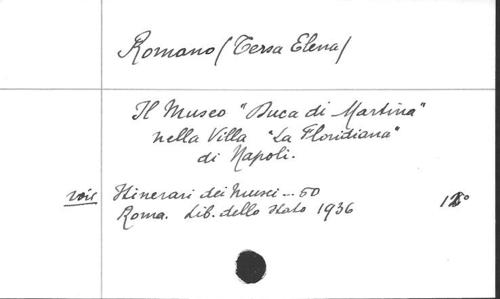 Romano (Tersa Elena)
Il Museo "Duca di Martina"
nella Villa "La Floridiana"
di Napoli.
voir Itinerari dei Musei - 50
Roma. Lib. dello Stato 1936